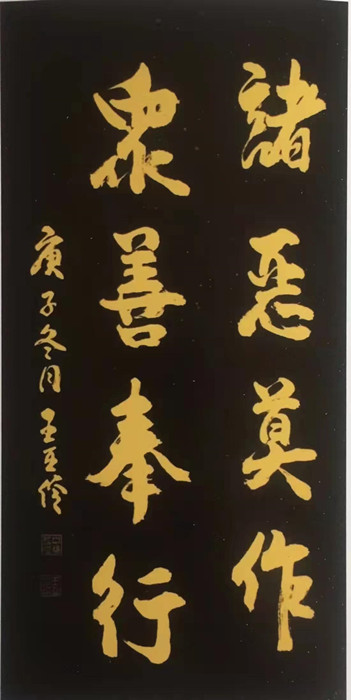 諸惡莫作
衆善奉行
庚子冬月王亚伶